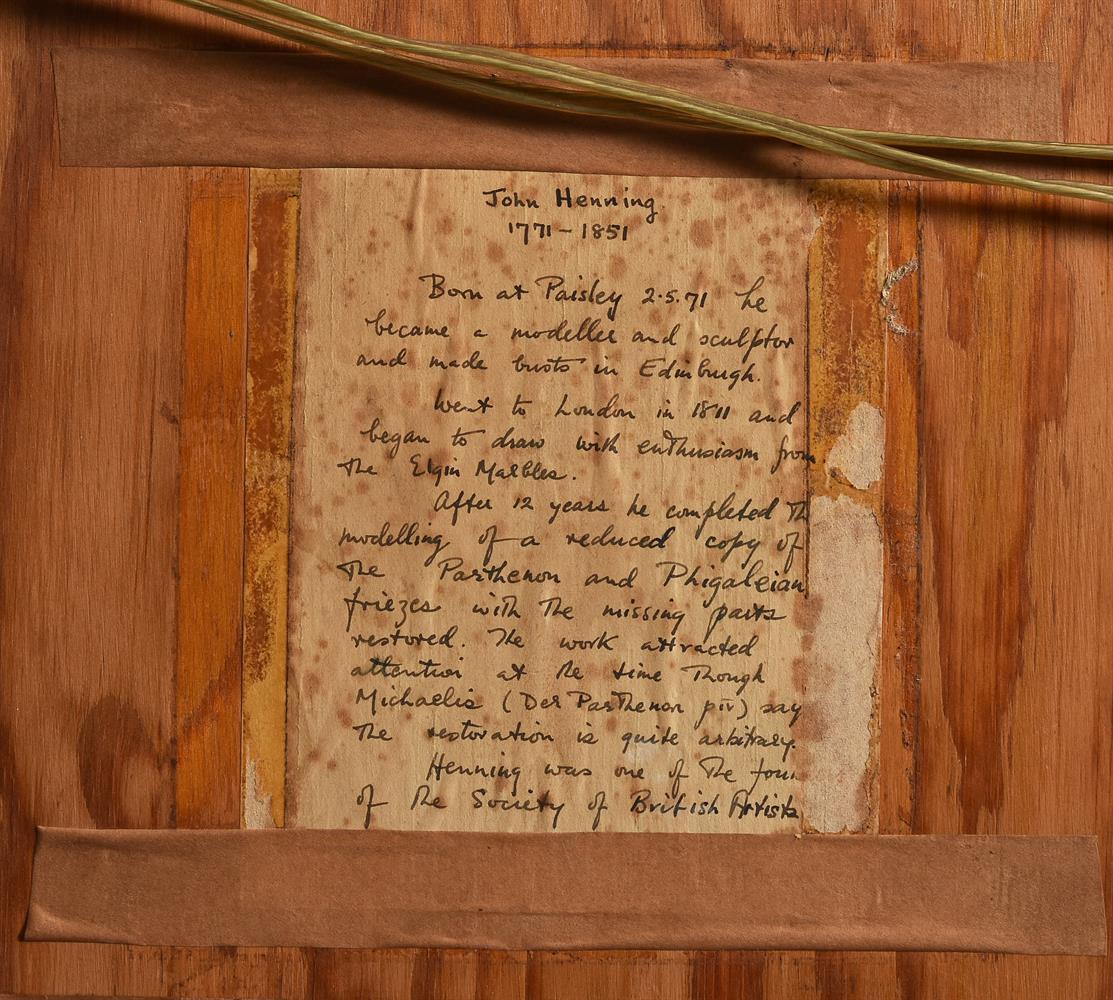 John Henning
1771 - 1851
Born at Paisley 2.5.71 he
became a modeller and sculptor
and made busts in Edinburgh.
Went to London in 1811 and
began to draw with enthusiasm from
the Elgin Marbles.
After 12 years he completed th
modelling of a reduced copy of
the Parthenon and Phigaleian
friezes with the missing parts
restored. The work attracted
attention at the time though
Michaelis (Der Parthenon pIV) say
the restoration is quite arbitrary.
Henning was one of the foun
of the Society of British Artists